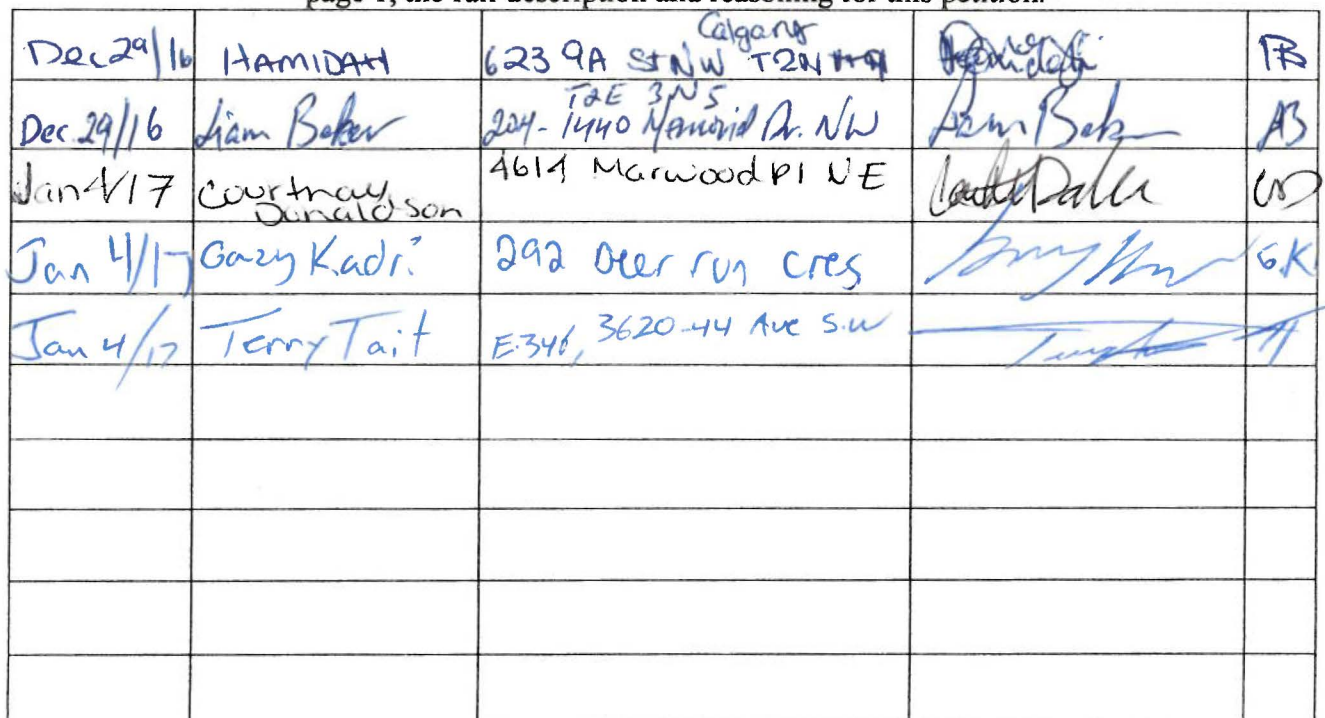 page 1, the full description and reasoning for this petition.
Dec 29/16 HAMIDAH 623 9A St NW Calgary T2N
Dec. 29/16 Liam Baker 204-1440 Memorial Dr. NW T2E 3N5
Jan 4/17 Courtnay Donaldson 4614 Marwood Pl NE CD
Jan 4/17 Gazy Kadri 292 Deer run cres G.K
Jan 4/17 Terry Tait E-346, 3620-44 Ave S.W